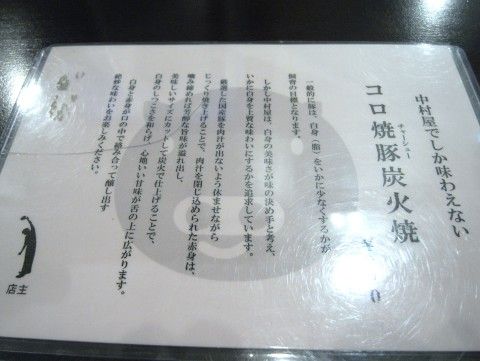 中村屋でしか味わえない
コロ焼豚炭火焼
チャーシュー
一般的に豚は、白身(脂)をいかに少なくするかが
飼育の目標となります。
しかし中村屋は、白身の美味さが味の決め手と考え、
いかに白身を上質な味わいにするかを追求しています。
厳選した国産豚を肉汁が出ないよう休ませながら
じっくり焼き上げることで、肉汁を閉じ込められた赤身は、
噛み締めれば芳醇な旨味が溢れ出し、
美味しいサイズにカットして炭火で仕上げることで、
白身のしつこさを和らげ、心地いい甘味が舌の上に広がります。
白身と赤身が口の中で絡み合って醸し出す
絶妙な味わいをお楽しみください。
店主